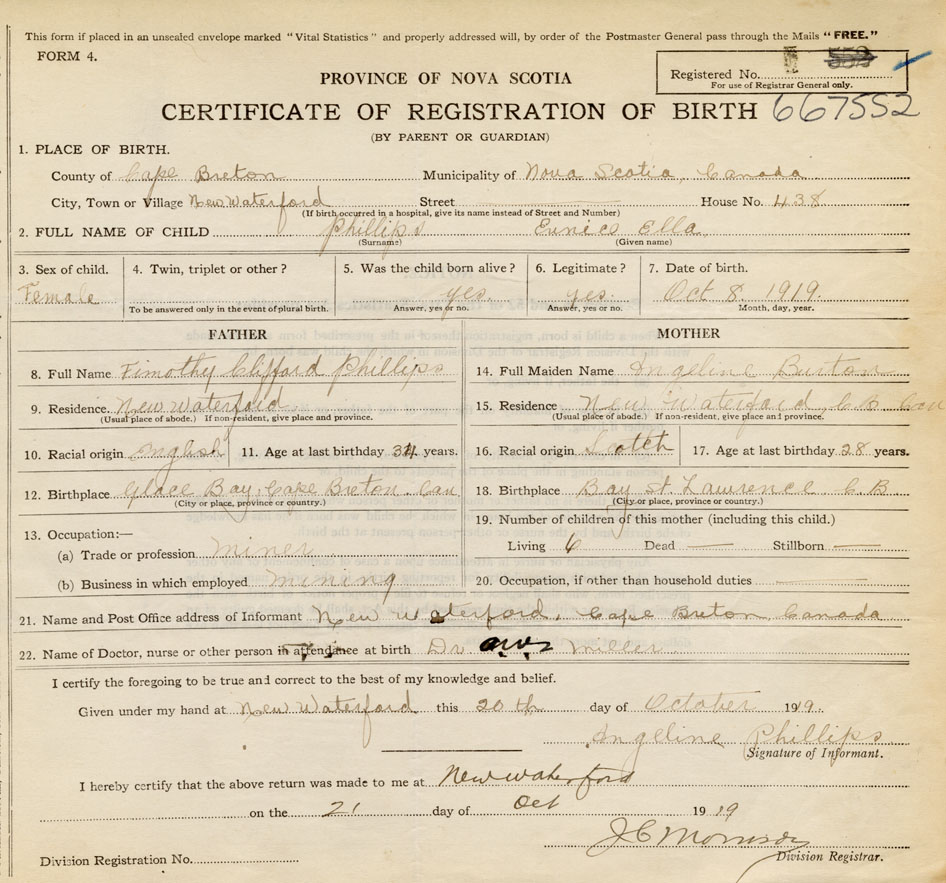 This form if placed in an unsealed envelope marked "Vital Statistics" and properly addressed will, by order of the Postmaster General pass through the Mails "FREE."
FORM 4.
Registered No.
For use of Registrar General only.
PROVINCE OF NOVA SCOTIA
CERTIFICATE OF REGISTRATION OF BIRTH 667552
(BY PARENT OR GUARDIAN)
1. PLACE OF BIRTH.
County of Cape Breton Municipality of Nova Scotia, Canada
City, Town or Village New Waterford Street House No. 438
(If birth occurred in a hospital, give its name instead of Street and Number)
2. FULL NAME OF CHILD Phillips Eunice Ella
(Surname) (Given name)
3. Sex of child. 4. Twin, triplet or other? 5. Was the child born alive? 6. Legitimate? 7. Date of birth.
Female yes. yes. Oct 8. 1919.
To be answered only in the event of plural birth. Answer, yes or no. Answer, yes or no. Month, day, year.
FATHER MOTHER
8. Full Name Timothy Clifford Phillips 14. Full Maiden Name Angeline Burton
9. Residence. New Waterford 15. Residence New Waterford, C.B. Can
(Usual place of abode.) If non-resident, give place and province. (Usual place of abode.) If non-resident, give place and province.
10. Racial origin English 11. Age at last birthday 34 years. 16. Racial origin Scotch 17. Age at last birthday 28 years.
12. Birthplace Glace Bay, Cape Breton, Can 18. Birthplace Bay St Lawrence C.B
(City or place, province or country.) (City or place, province or country.)
13. Occupation:— 19. Number of children of this mother (including this child.)
(a) Trade or profession Miner Living 6 Dead — Stillborn —
(b) Business in which employed Mining 20. Occupation, if other than household duties
21. Name and Post Office address of Informant New Waterford, Cape Breton Canada
22. Name of Doctor, nurse or other person in attendance at birth Dr Miller
I certify the foregoing to be true and correct to the best of my knowledge and belief.
Given under my hand at New Waterford this 20th day of October 1919.
Angeline Phillips
Signature of Informant.
I hereby certify that the above return was made to me at New waterford
on the 21 day of Oct 1919
J C Morrison
Division Registration No. Division Registrar.